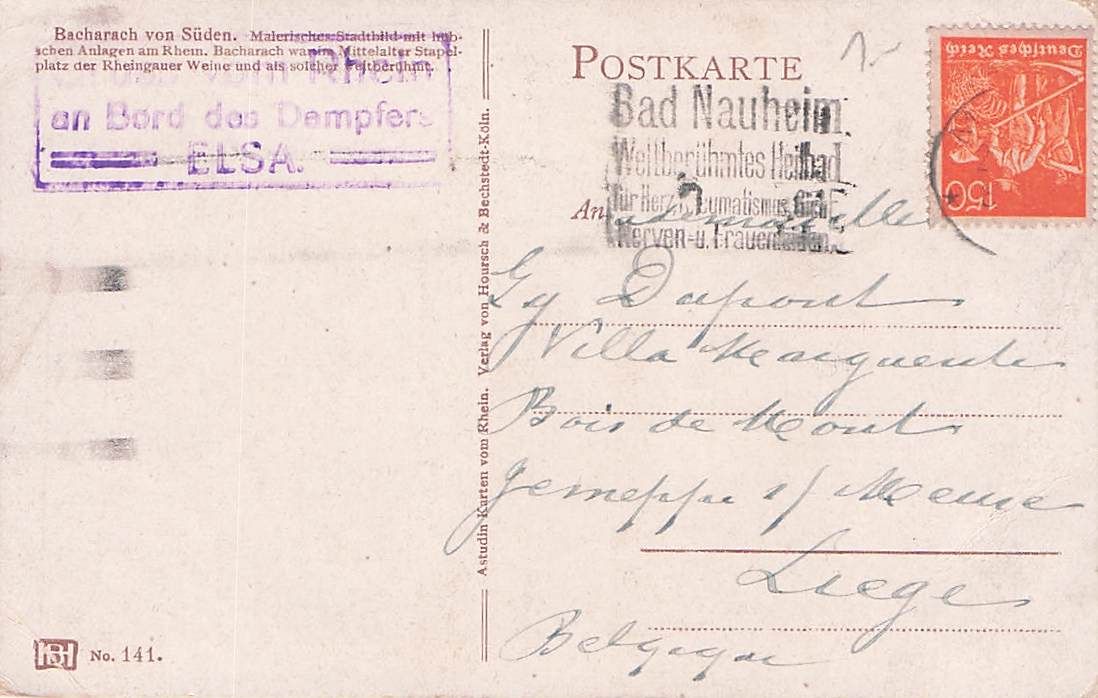 Bacharach von Süden. Malerisches Stadtbild mit hüb-
schen Anlagen am Rhein. Bacharach war im Mittelalter Stapel-
platz der Rheingauer Weine und als solcher weltberühmt.
vom Rhein
an Bord des Dampfers
ELSA.
Astudin Karten vom Rhein. Verlag von Hoursch & Bechstedt-Köln.
HB No. 141.
POSTKARTE
Bad Nauheim
Weltberühmtes Heilbad
für Herz
Nerven-u. Frauenleiden
An
Deutsches Reich
150
Dupont
Villa Marguerite
Bois de Mont
Jemeppe s/ Meuse
Liege
Belgique